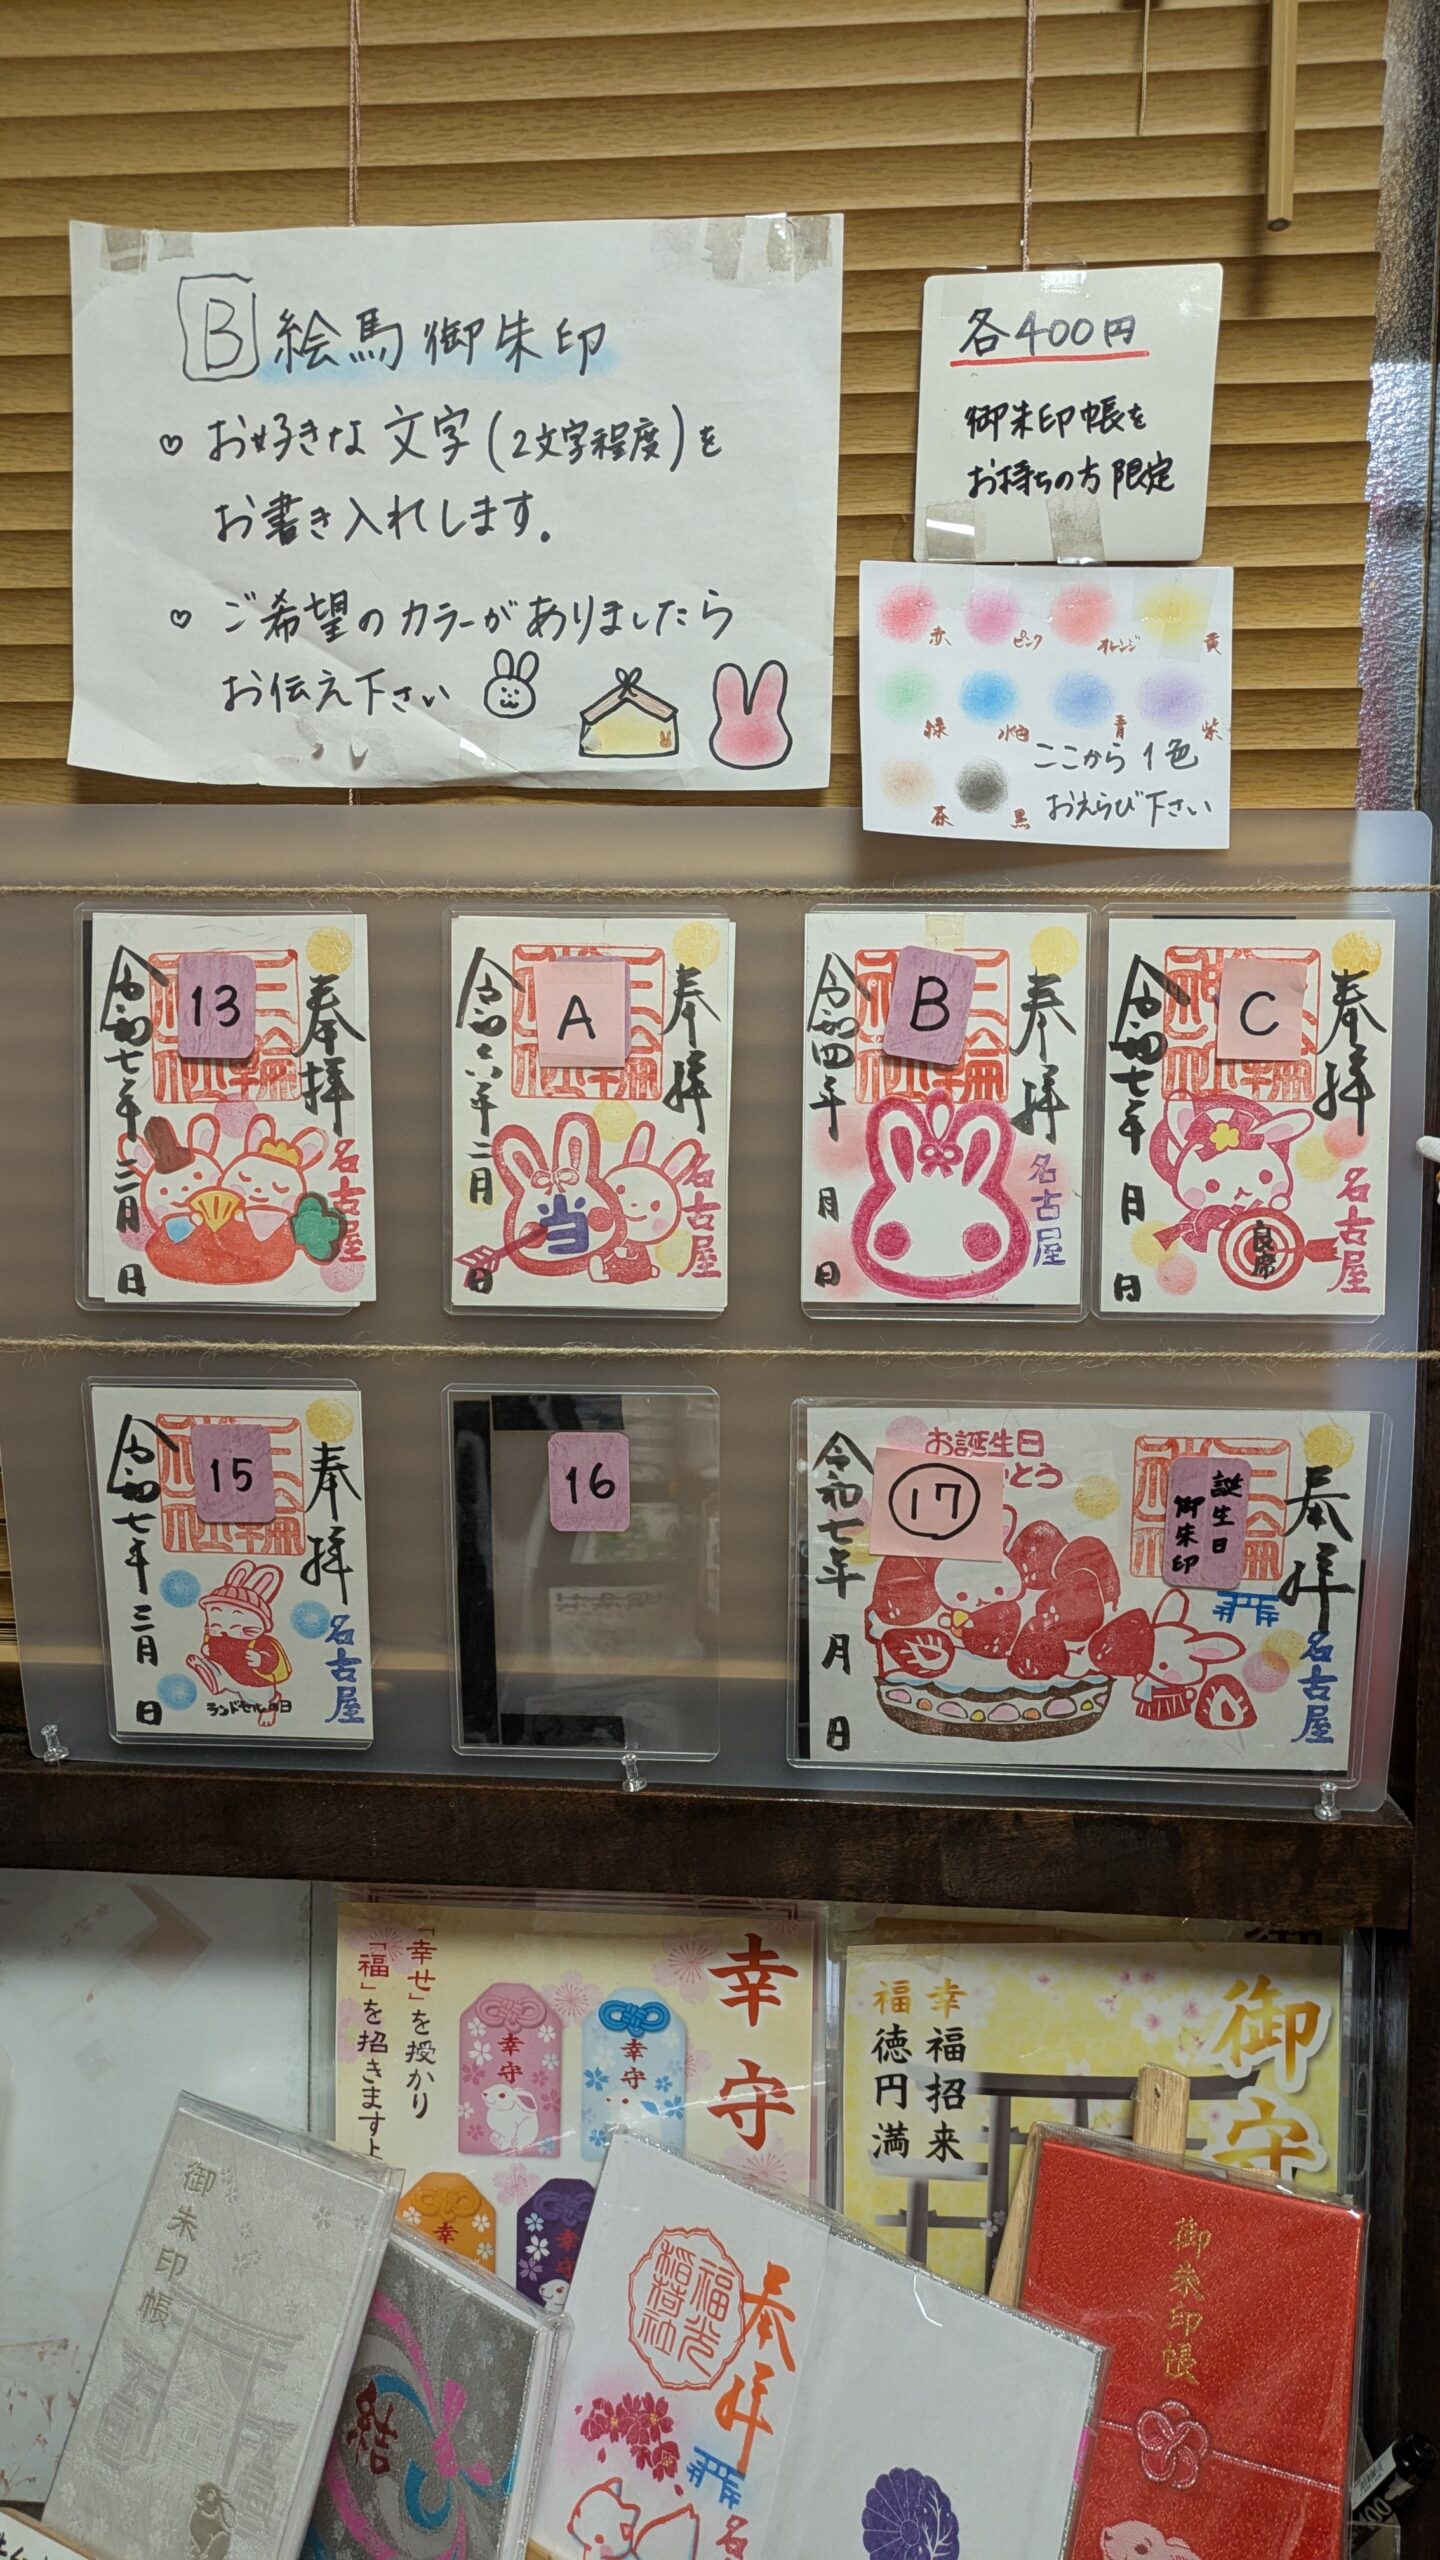 B 絵馬御朱印
♡ お好きな文字(2文字程度)を
お書き入れします。
♡ ご希望のカラーがありましたら
お伝え下さい
各400円
御朱印帳を
お持ちの方限定
赤 ピンク オレンジ 黄
緑 水色 青 紫
茶 黒
ここから1色
おえらび下さい
13
奉拝
名古屋
令和七年三月 日
A
奉拝
名古屋
当
令和六年二月 日
B
奉拝
名古屋
令和四年 月 日
C
奉拝
名古屋
良席
令和七年 月 日
15
奉拝
名古屋
ランドセルの日
令和七年三月 日
16
17
お誕生日
とう
誕生日
御朱印
奉拝
名古屋
令和七年 月 日
幸守
「幸せ」を授かり
「福」を招きます
幸守
幸守
幸
幸守
御守
幸福招来
福徳円満
御朱印帳
結
奉拝
福光稲荷社
名
御朱印帳